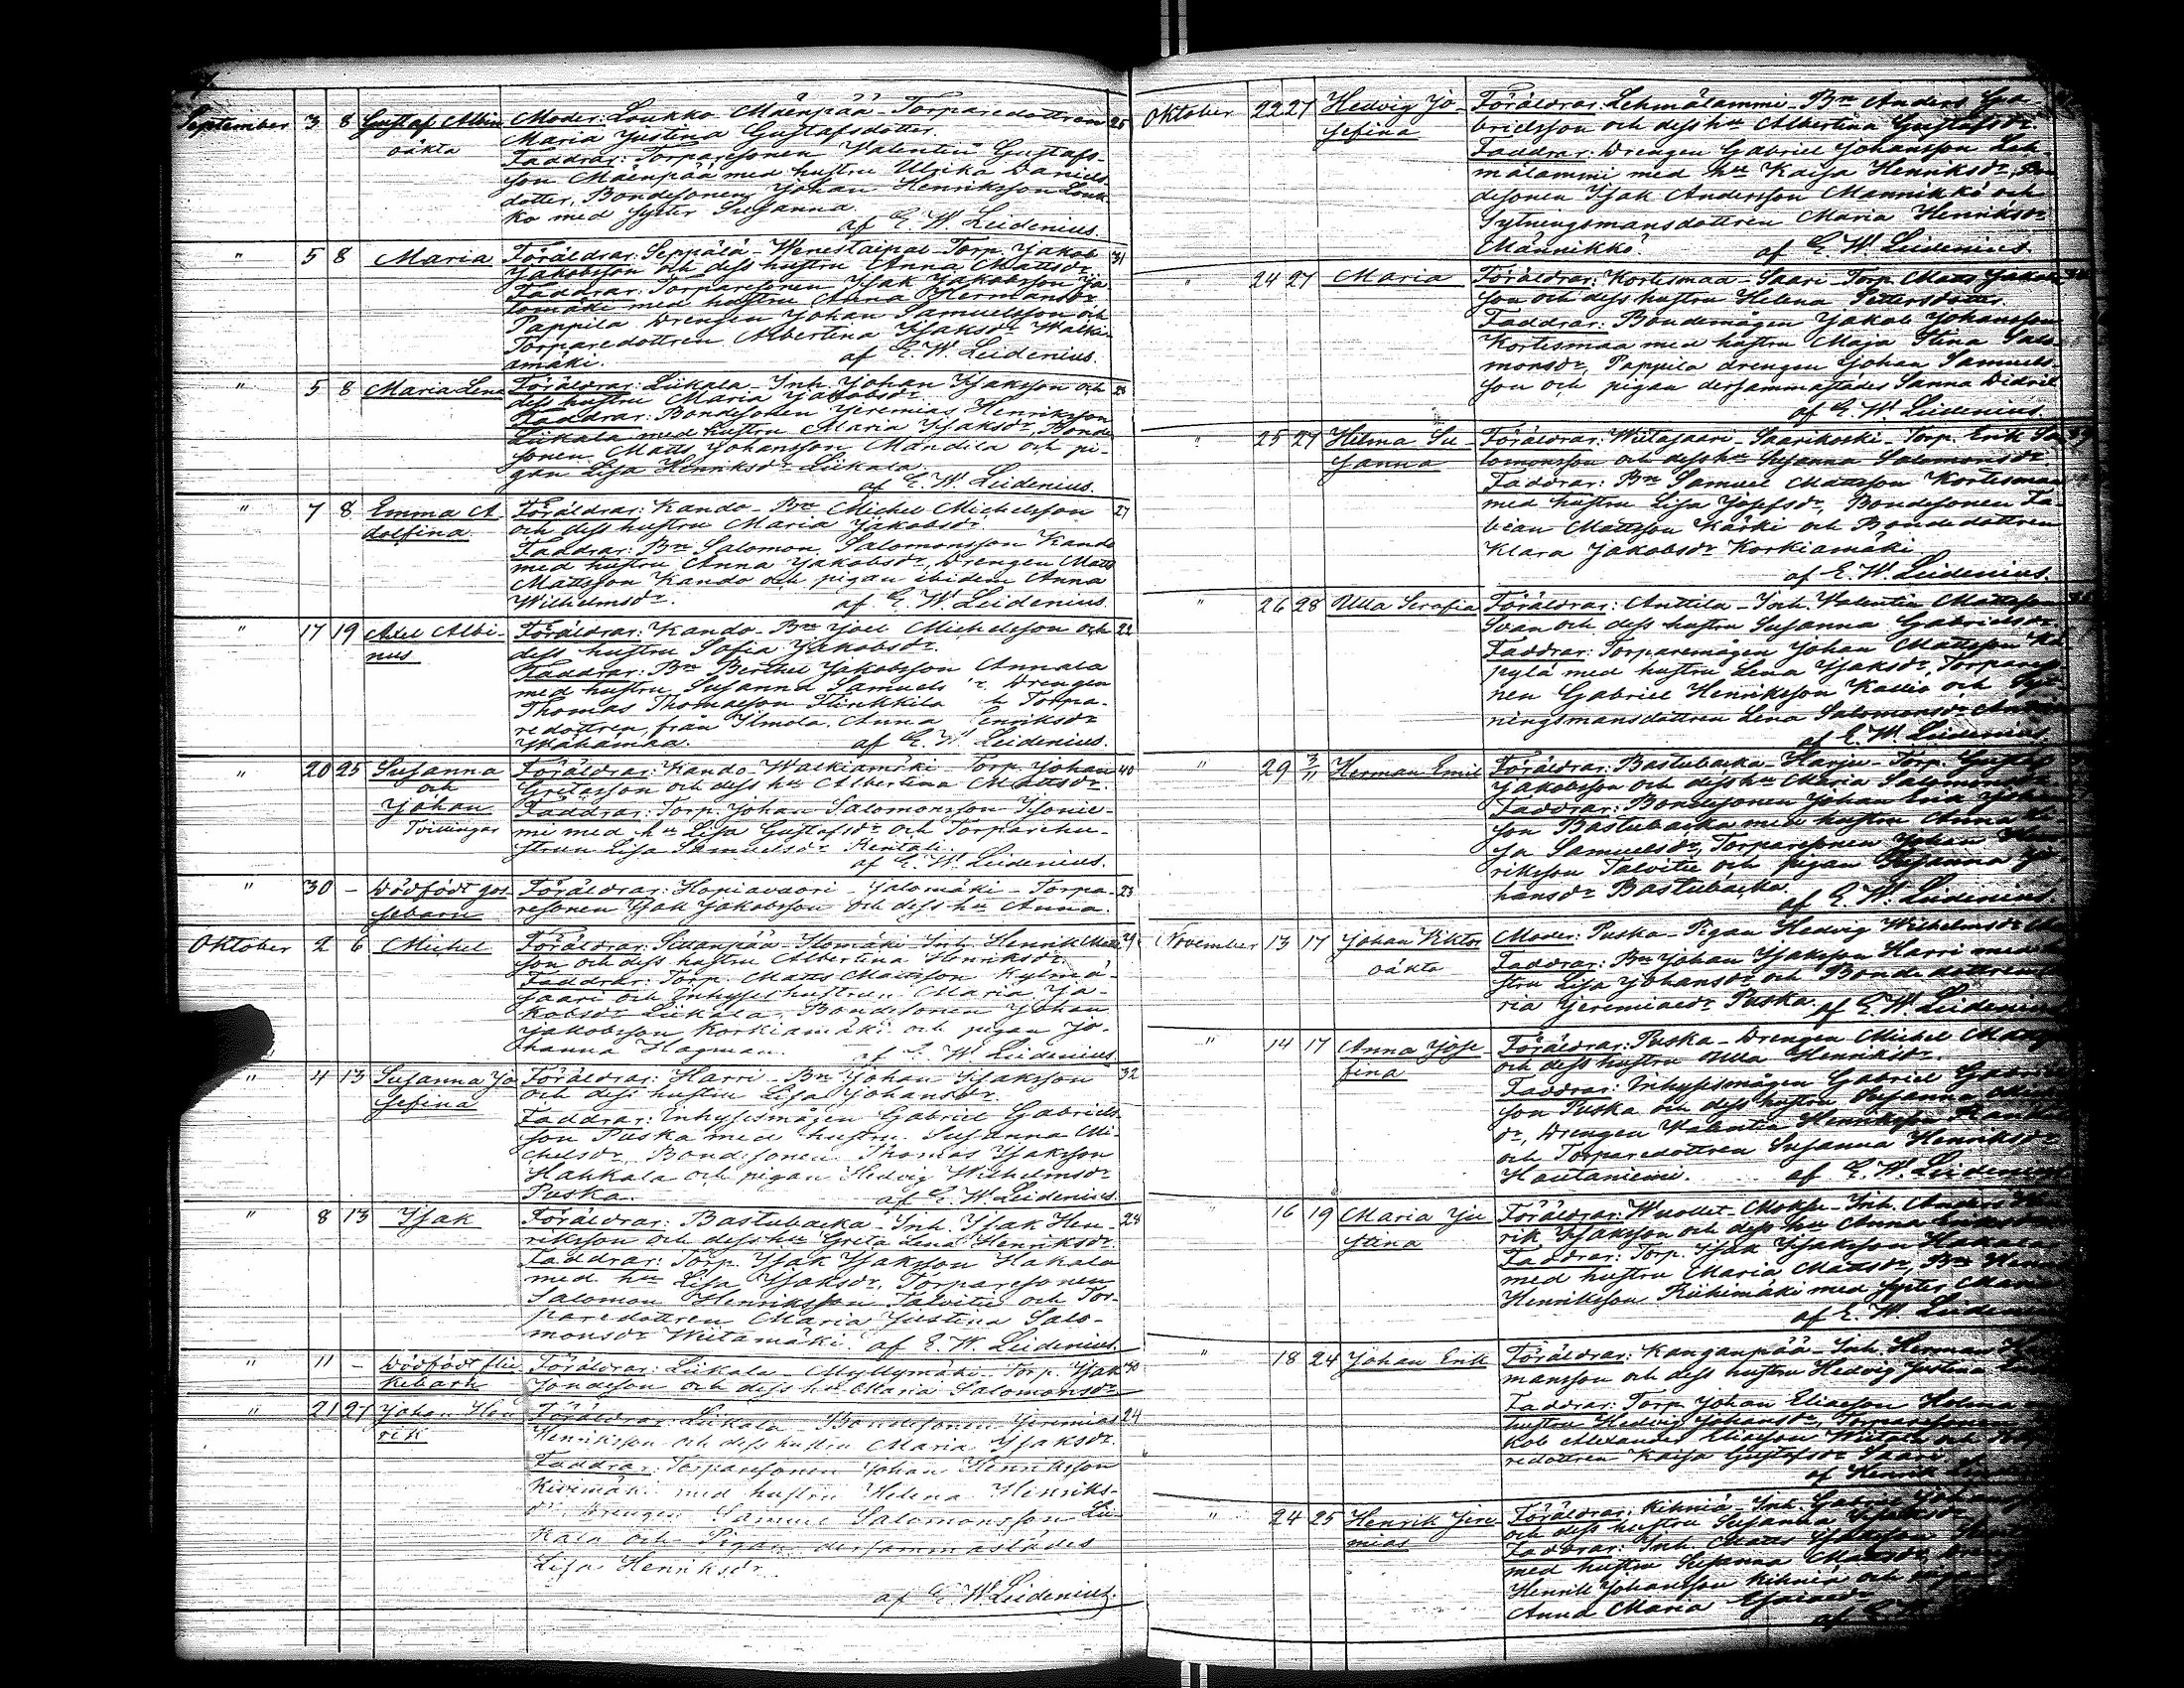 September 3 8 Gustaf Albin Moder: Loukko Mäenpää Torparedottren 25
oäkta Maria Justina Gustafsdotter.
Faddrar: Torparesonen Valentin Gustafs-
son Mäenpää med hustru Ulrika Daniels-
dotter, Bondesonen Johan Henriksson Louk-
ko med syster Susanna.
af E. W. Leidenius.
" 5 8 Maria Föräldrar: Seppälä- Torp. Jakob 31
Jakobsson och dess hustru Anna Mattsdr
Faddrar: Torparesonen Isak Jakobsson Ja-
lomäki med hustru Anna Hermansdr
Pappila Drengen Johan Samuelsson och
Torparedottren Albertina Isaksdr Walki-
amäki.
af E. W. Leidenius.
" 5 8 Maria Lena Föräldrar: Liikala- Inh. Johan Isaksson och
dess hustru Maria Jakobsdr.
Faddrar: Bondesonen Jeremias Henriksson
Liikala med hustru Maria Isaksdr, Bonde
sonen Matts Johansson Mandila och pi-
gan Lisa Henriksdr Liikala.
af E. W. Leidenius.
" 7 8 Emma A- Föräldrar: Kando- Bn Michel Michelsson 27
dolfina och dess hustru Maria Jakobsdr.
Faddrar: Bn Salomon Salomonsson Kando
med hustru Anna Jakobsdr, Drengen Matts
Mattsson Kando och pigan ibidem Anna
Wilhelmsdr. af E. W. Leidenius.
" 17 19 Axel Albi- Föräldrar: Kando- Bn Joel Michelsson och 22
nus dess hustru Sofia Jakobsdr.
Faddrar: Bn Berthel Jakobsson Annala
med hustru Susanna Samuels Drengen
Thomas Thomasson Torpa-
redottren från Ilmola, Anna Henriksdr
Wähämaa. af E. W. Leidenius.
" 20 25 Susanna Föräldrar: Kando- Walkiamäki Torp. Johan 40
och Gretasson och dess hu Albertina Mattsdr.
Johan Faddrar: Torp. Johan Salomonsson Isonie-
Tvillingar mi med hu Lisa Gustafsdr och Torparehu-
strun Lisa Samuelsdr Rentola.
af E. W. Leidenius.
" 30 - Dödfödt gos- Föräldrar: Hopiavuori - Jalomäki - Torpa- 23
sebarn resonen Isak Jakobsson och dess hu Anna.
Oktober 2 6 Michel Föräldrar: Sillanpää- Inh. Henrik Matts
son och dess hustru Albertina Henriksdr.
Faddrar: Torp. Matts Mattsson Kylmä-
saari och Inhyses hustrun Maria Ja-
kobsdr Liikala, Bondesonen Johan
Jakobsson Korkiamäki och pigan Jo-
hanna Hagman. af E. W. Leidenius
" 4 13 Susanna Jo- Föräldrar: Harri - Bn Johan Isaksson 32
sefina och dess hustru Lisa Johansdr.
Faddrar: Inhysismågen Gabriel Gabriels-
son Puska med hustru Susanna Mi-
chelsdr, Bondesonen Thomas Isaksson
Hakkala och pigan Hedvig Wilhelmsdr
Puska. af E. W. Leidenius.
" 8 13 Isak Föräldrar: Bastubacka- Inh. Isak Hen- 24
riksson och dess hu Greta Lena Henriksdr.
Faddrar: Torp. Isak Isaksson Hakala
med hu Lisa Isaksdr, Torparesonen
Salomon Henriksson Talvitie och Tor-
paredottren Maria Justina Salo-
monsdr Wiitamäki. af E. W. Leidenius.
" 11 - Dödfödt flic- Föräldrar: Liikala - Myllymäki - Torp. Isak 40
kebarn Jonasson och dess hu Maria Salomonsdr
" 21 27 Johan Hen- Föräldrar: Liikala Bondesonen Jeremias 24
rik Henriksson och dess hustru Maria Isaksdr.
Faddrar: Torparesonen Johan Henriksson
Kivimäki med hustru Helena Henriks-
dr Drengen Samuel Salomonsson Lii-
kala och Pigan dersammastädes
Lisa Henriksdr
af E. W. Leidenius.
Oktober 22 27 Hedvig Jo- Föräldrar: Lehmälammi- Bn Anders Ga-
sefina brielsson och dess hu Albertina Gustafsdr.
Faddrar: Drengen Gabriel Johansson Leh-
mälammi med hu Kaisa Henriksdr, Bon
desonen Isak Andersson Männikkö och
Sytningsmansdottren Maria Henriksdr
Männikkö. af E. W. Leidenius.
" 24 27 Maria Föräldrar: Kortesmaa- Saari- Torp. Matts Jakobs
son och dess hustru Helena Pettersdotter.
Faddrar: Bondemågen Jakob Johansson
Kortesmaa med hustru Maja Stina Salo-
monsdr, Pappila drengen Johan Samuels-
son och pigan dersammastädes Sanna Didrik
af E. W. Leidenius.
" 25 27 Hilma Su- Föräldrar: Wiitasaari- Saarikoski- Torp. Erik Sa-
sanna lomonsson och dess hu Susanna Salomonsdr
Faddrar: Bn Samuel Mattsson Kortesmaa
med hustru Lisa Josefsdr, Bondesonen Fa-
bian Mattsson Kärki och Bondedottren
Klara Jakobsdr Korkiamäki
af E. W. Leidenius.
" 26 28 Ulla Serafia Föräldrar: Anttila- Inh. Valentin Mattsson
Svan och dess hustru Susanna Gabrielsdr
Faddrar: Torparemågen Johan Mattsson
pylä med hustru Lena Isaksdr, Torpareso-
nen Gabriel Henriksson Kallio och Syt-
ningsmansdottren Lena Salomonsdr
af E. W. Leidenius.
" 29 3/11 Herman Emil Föräldrar: Bastubacka- Harju- Torp. Gustaf
Jakobsson och dess hu Maria Salomonsdr
Faddrar: Bondesonen Johan Johans
son Bastubacka med hustru Anna Li-
sa Samuelsdr, Torparesonen Johan Hen-
riksson Talvitie och pigan Susanna Jo-
hansdr Bastubacka. af E. W. Leidenius.
November 13 17 Johan Viktor Moder: Puska- Pigan Hedvig Wilhelmsdr
oäkta Faddrar: Bn Johan Isaksson Harri med hu-
stru Lisa Johansdr och Bondedottren Ma-
ria Jeremiaedr Puska. af E. W. Leidenius
" 14 17 Anna Jose- Föräldrar: Puska- Drengen Michel
fina och dess hustru Ulla Henriksdr.
Faddrar: Inhysismågen Gabriel Gabriels
son Puska och dess hustru Susanna
dr, Drengen Valentin Henriksson
och Torparedottren Susanna Henriksdr
Hautaniemi. af E. W. Leidenius
" 16 19 Maria Ju- Föräldrar: Wuollet- Inh. Anders
stina rik Isaksson och dess hu Anna
Faddrar: Torp. Isak Isaksson
med hustru Maria Mattsdr, Bn
Henriksson Riihimäki med syster Maria
af E. W. Leidenius
" 18 24 Johan Erik Föräldrar: Kanganpää- Inh. Herman
mansson och dess hustru Hedvig Justina
Faddrar: Torp Johan Eliasson
hustru Hedvig Johansdr, Torparesonen
kob Alexander Eliasson
redottren Kaisa Gustafsdr Saari
af
" 24 25 Henrik Jere- Föräldrar: Kihniä- Inh. Gabriel
mias och dess hustru Susanna
Faddrar: Inh. Matts
med hustru Susanna
Henrik Johansson Kihniä och
Anna Maria
af